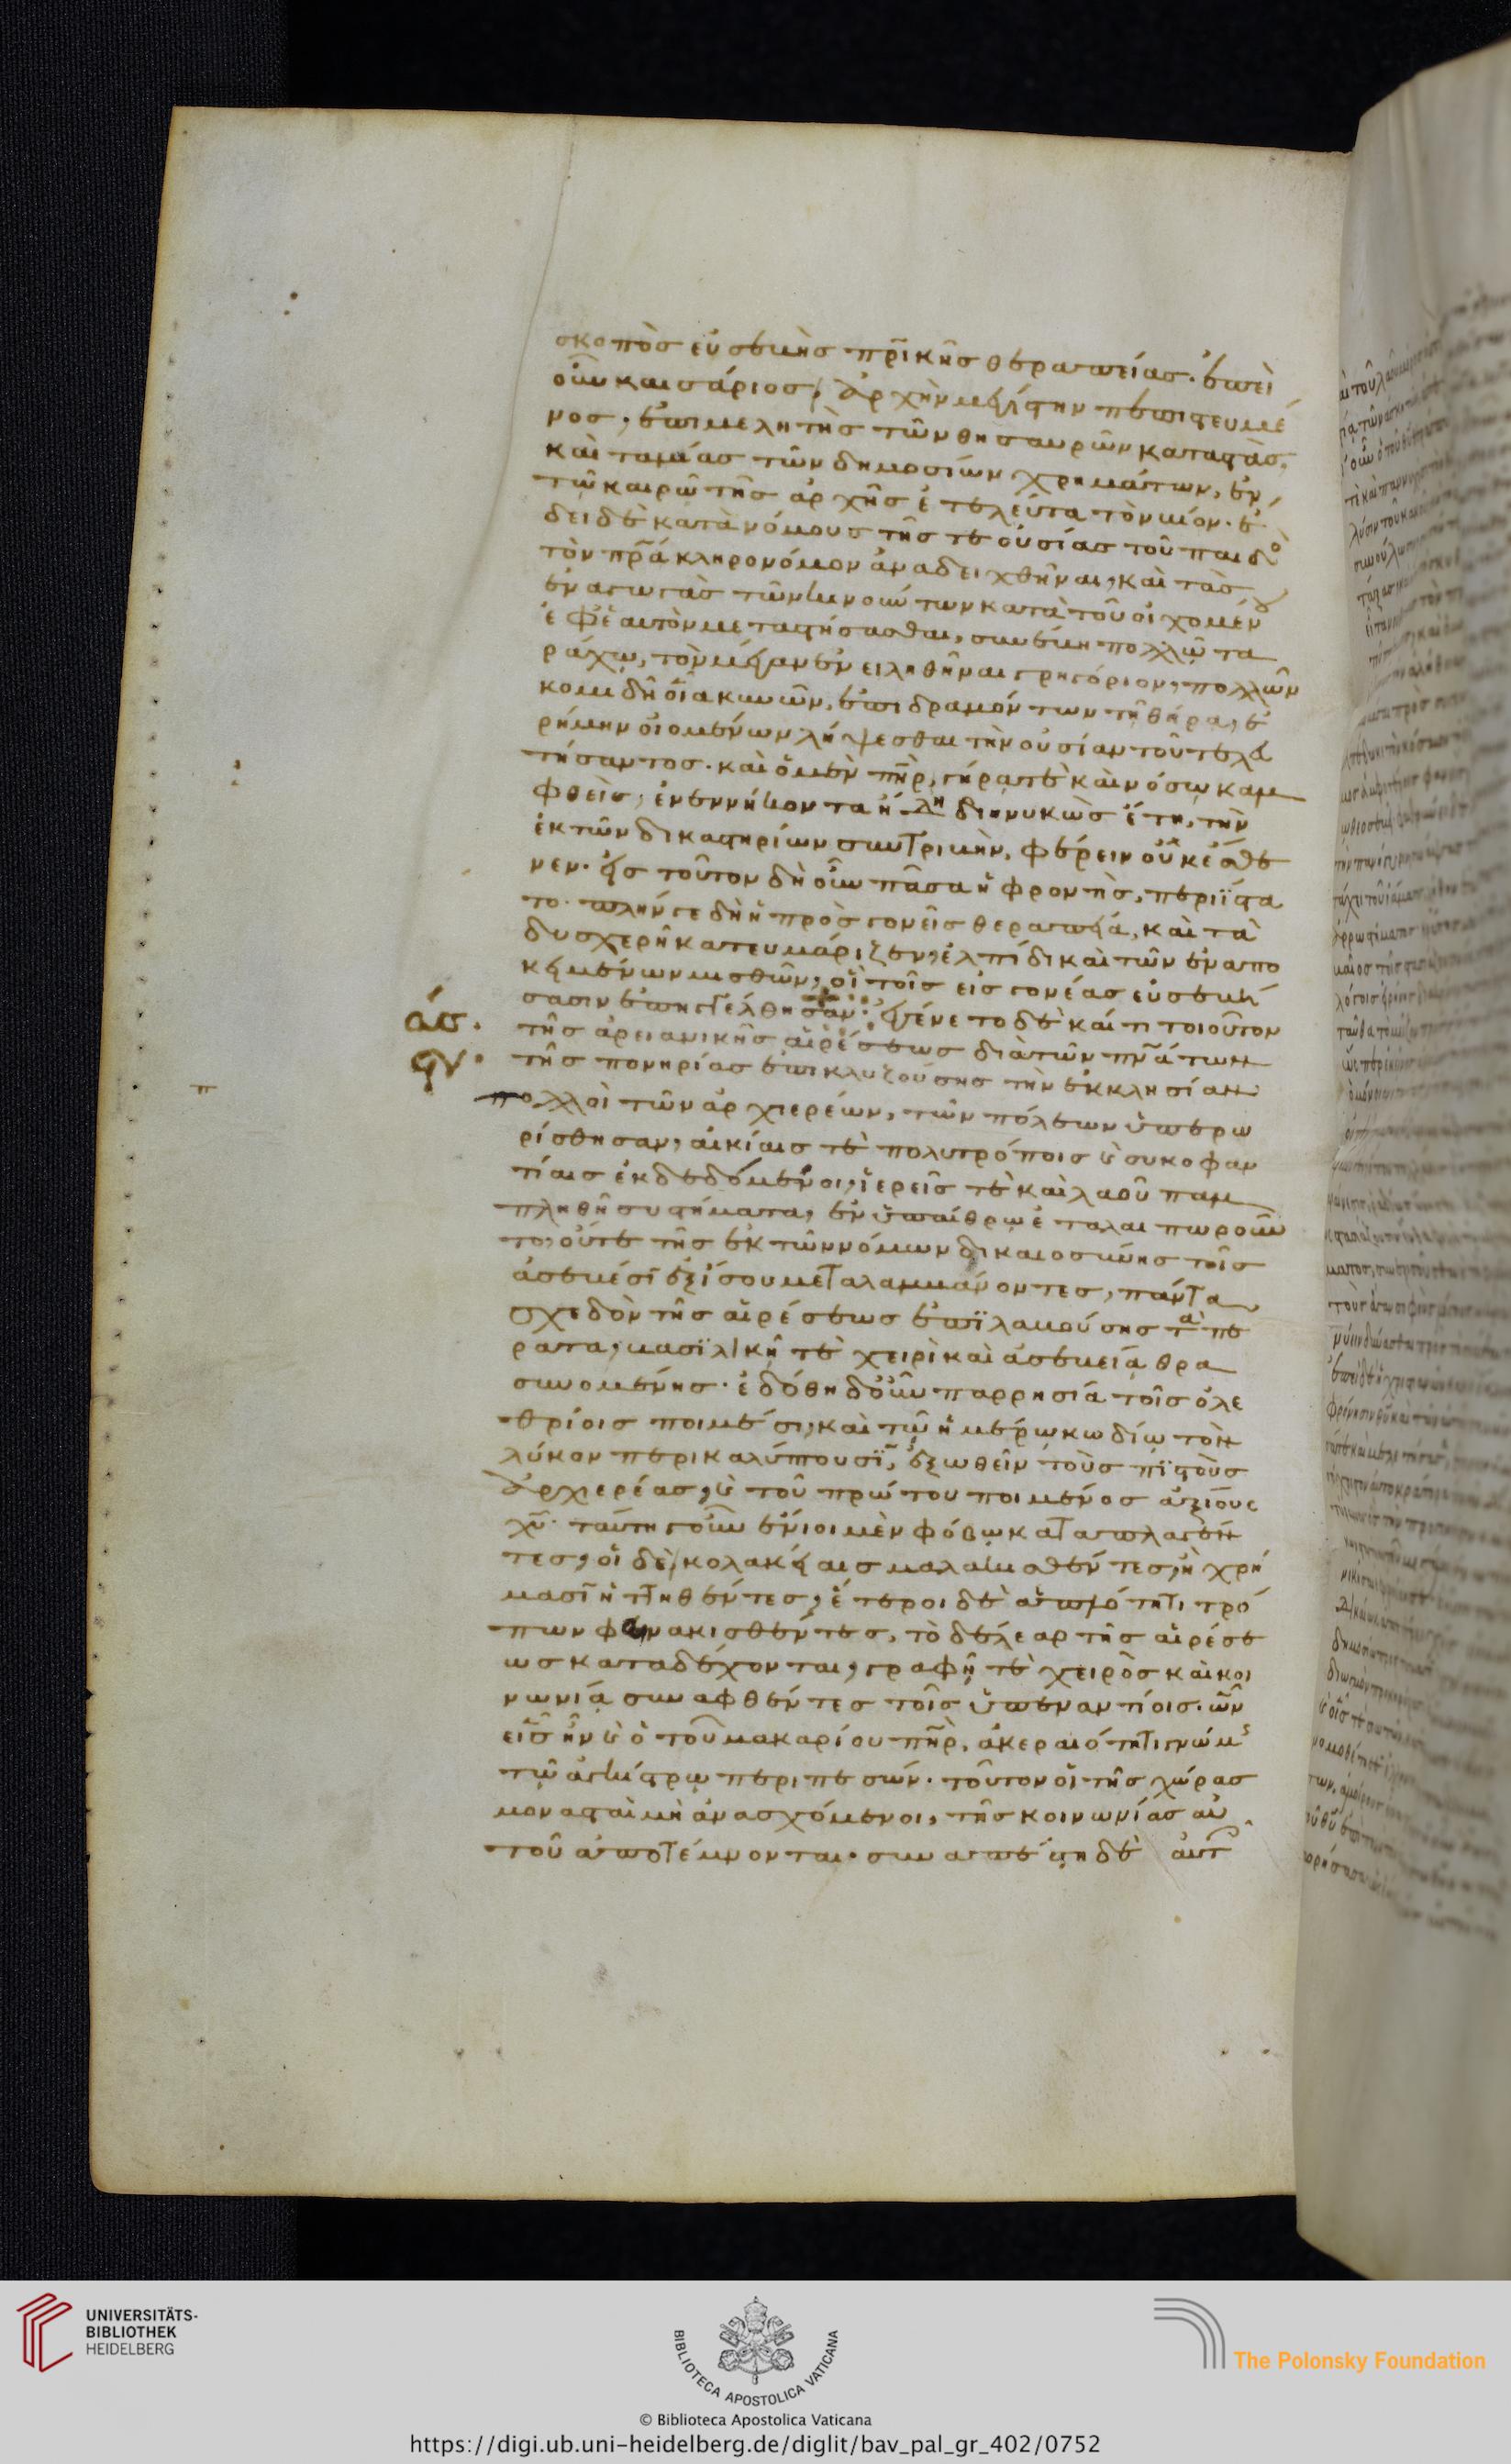 σκοπὸσ εὐσεβὴσ πρ̅ικῆσ θεραπείασ· ἐπεὶ
οὖν καισάριοσ, ἀρχὴν μεγίστην πεπιστευμέ
νοσ, ἐπιμελητὴσ τῶν θησαυρῶν καταστὰσ,
καὶ ταμίασ τῶν δημοσίων χρημάτων, ἐν
τῶ καιρῶ τῆσ ἀρχῆσ ἐτελεύτα τὸν βίον· ἔ
δει δὲ κατὰ νόμουσ τῆσ τε οὐσίασ τοῦ παιδὸ
τὸν πρ̅α κληρονόμον ἀναδειχθῆναι, καὶ τὰσ
ἐναγωγὰσ τῶν κινούντων κατὰ τοῦ οἰχομένου
ἐφ' ἑαυτὸν μεταστήσασθαι, συνέβη πολλῶ τα
ράχω, τὸν μέγαν ἐνειληθῆναι γρηγόριον, πολλῶν
κομιδῆ οἷα κυνῶν, ἐπιδραμόντων τῆ θήρα, ἐ
ρήμην οἰομένων λήψεσθαι τὴν οὐσίαν τοῦ τελευ
τήσαντοσ· καὶ ὁ μὲν πη̅ρ, γήρα τὲ καὶ νόσω καμ
φθεὶσ, ἐνενήκοντα ἤδη διηνυκὼσ ἔτη, τὴν
ἐκ τῶν δικαστηρίων συντριβὴν, φέρειν οὐκ ἔσθε
νεν· εἰσ τοῦτον δὴ οὖν πᾶσα ἡ φροντὶσ, περιΐστα
το· πλήν γε δὴ ἡ πρὸσ γονεῖσ θεραπεία, καὶ τὰ
δυσχερῆ κατευμάριζεν, ἐλπίδι καὶ τῶν ἐναπο
κειμένων μισθῶν, οἳ τοῖσ εἰσ γονέασ εὐσεβή
σασιν ἐπηγγέλθησαν: ἐγένετο δὲ καί τι τοιοῦτον
τῆσ ἀρειανικῆσ αἱρέσεωσ διὰ τῶν πν̅ατων
τῆσ πονηρίασ ἐπικλυζούσησ τὴν ἐκκλησίαν
πολλοὶ τῶν ἀρχιερέων, τῶν πόλεων ὑπερω
ρίσθησαν, αἰκίαισ τὲ πολυτρόποισ καὶ συκοφαν
τίαισ ἐκδεδόμενοι, ἱερεῖσ τὲ καὶ λαοῦ παμ
πληθῆ συστήματα, ἐν ὑπαίθρω ἐταλαιπωροῦν
το, οὔτε τῆσ ἐκ τῶν νόμων δικαιοσύνησ τοῖσ
ἀσεβέσϊ ἐξίσου μεταλαμβάνοντεσ, πάντα
σχεδὸν τῆσ αἱρέσεωσ ἐπϊλαβούσησ τὰ πέ
ρατα, βασιλικῆ τὲ χειρὶ καὶ ἀσεβεία θρα
συνομένησ· ἐδόθη δ' οὖν παρρησία τοῖσ ὀλε
θρίοισ ποιμέσι, καὶ τῶ ἡμέρω κωδίω τὸν
λύκον περικαλύπτουσϊ, ἐξωθεῖν τοὺσ πιστοὺσ
ἀρχιερέασ, καὶ τοῦ πρώτου ποιμένοσ ἀξίουσ
χυ̅· ταύτη γοῦν ἔνιοι μὲν φόβω καταπλαγέν
τεσ, οἱ δὲ, κολακείαισ μαλακισθέντεσ, ἢ χρή
μασϊ ἡττηθέντεσ, ἕτεροι δὲ ἁπλότητι τρό
πων φενακισθέντεσ, τὸ δέλεαρ τῆσ αἱρέσε
ωσ καταδέχονται, γραφῆ τὲ χειρὸσ καὶ κοι
νωνία συναφθέντεσ τοῖσ ὑπεναντίοισ· ὧν
εἷσ ἦν καὶ ὁ τοῦ μακαρίου πη̅ρ, ἀκεραιότητι γνώμησ
τῶ ἀγκίστρω περιπεσών· τοῦτον οἱ τῆσ χώρασ
μονασταὶ μὴ ἀνασχόμενοι, τῆσ κοινωνίασ αὐ
τοῦ ἀποτέμνονται· συναπέστη δὲ αὐτ
UNIVERSITÄTS-
BIBLIOTHEK
HEIDELBERG
BIBLIOTECA APOSTOLICA VATICANA
The Polonsky Foundation
© Biblioteca Apostolica Vaticana
https://digi.ub.uni-heidelberg.de/diglit/bav_pal_gr_402/0752